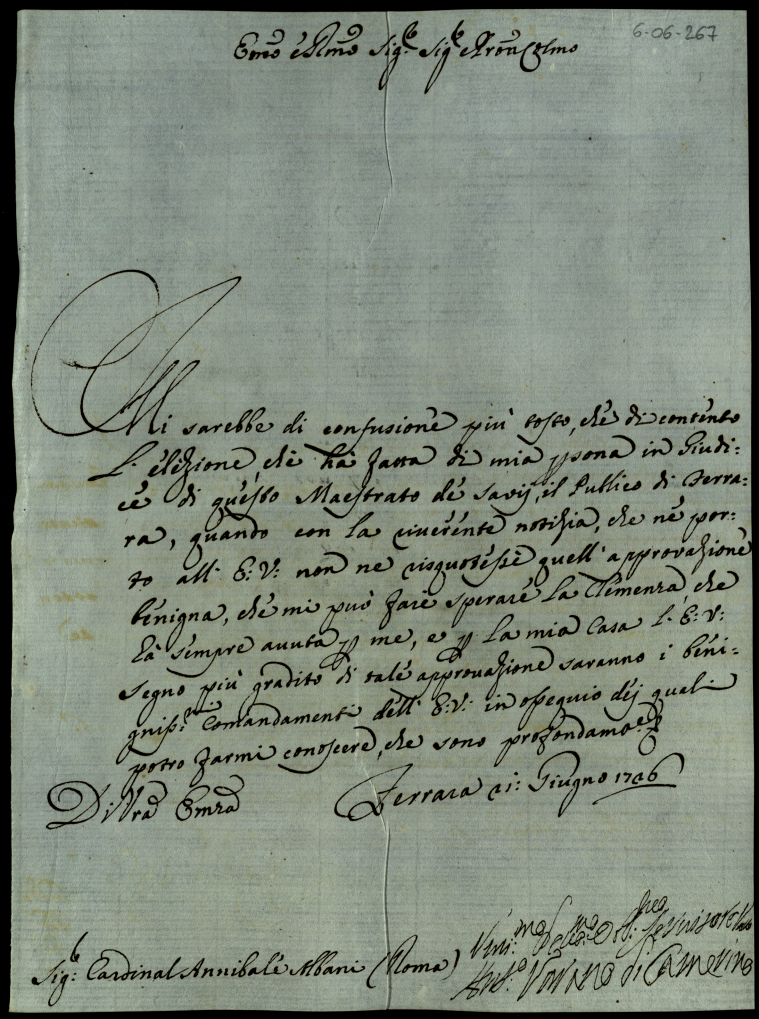 6-06-267
Emo e Rmo Sig:r Sig:r Pron Colmo
Mi sarebbe di confusione più tosto, che di contento
L'elezione, che hà fatta di mia psona in Giudi:
ce di questo Maestrato de Savij, il Publico di Ferra:
ra, quando con la riverente notizia, che ne por:
to all' E: V: non ne risquotesse quell' approvazione
benigna, che mi può fare sperare La Clemenza, che
hà sempre avuta p me, e p La mia Casa l' E: V:
segno più gradito di tale approvazione saranno i beni:
gniss:mi Comandamenti dell' E: V: in ossequio dej quali
potrò farmi conoscere, che sono profondamte
Di Vra Emza Ferrara 21: Giugno 1726
Sig:r Cardinal Annibale Albani (Roma)
Um:mo Dev:mo Ob:mo
Ant:o Varano di Camerino